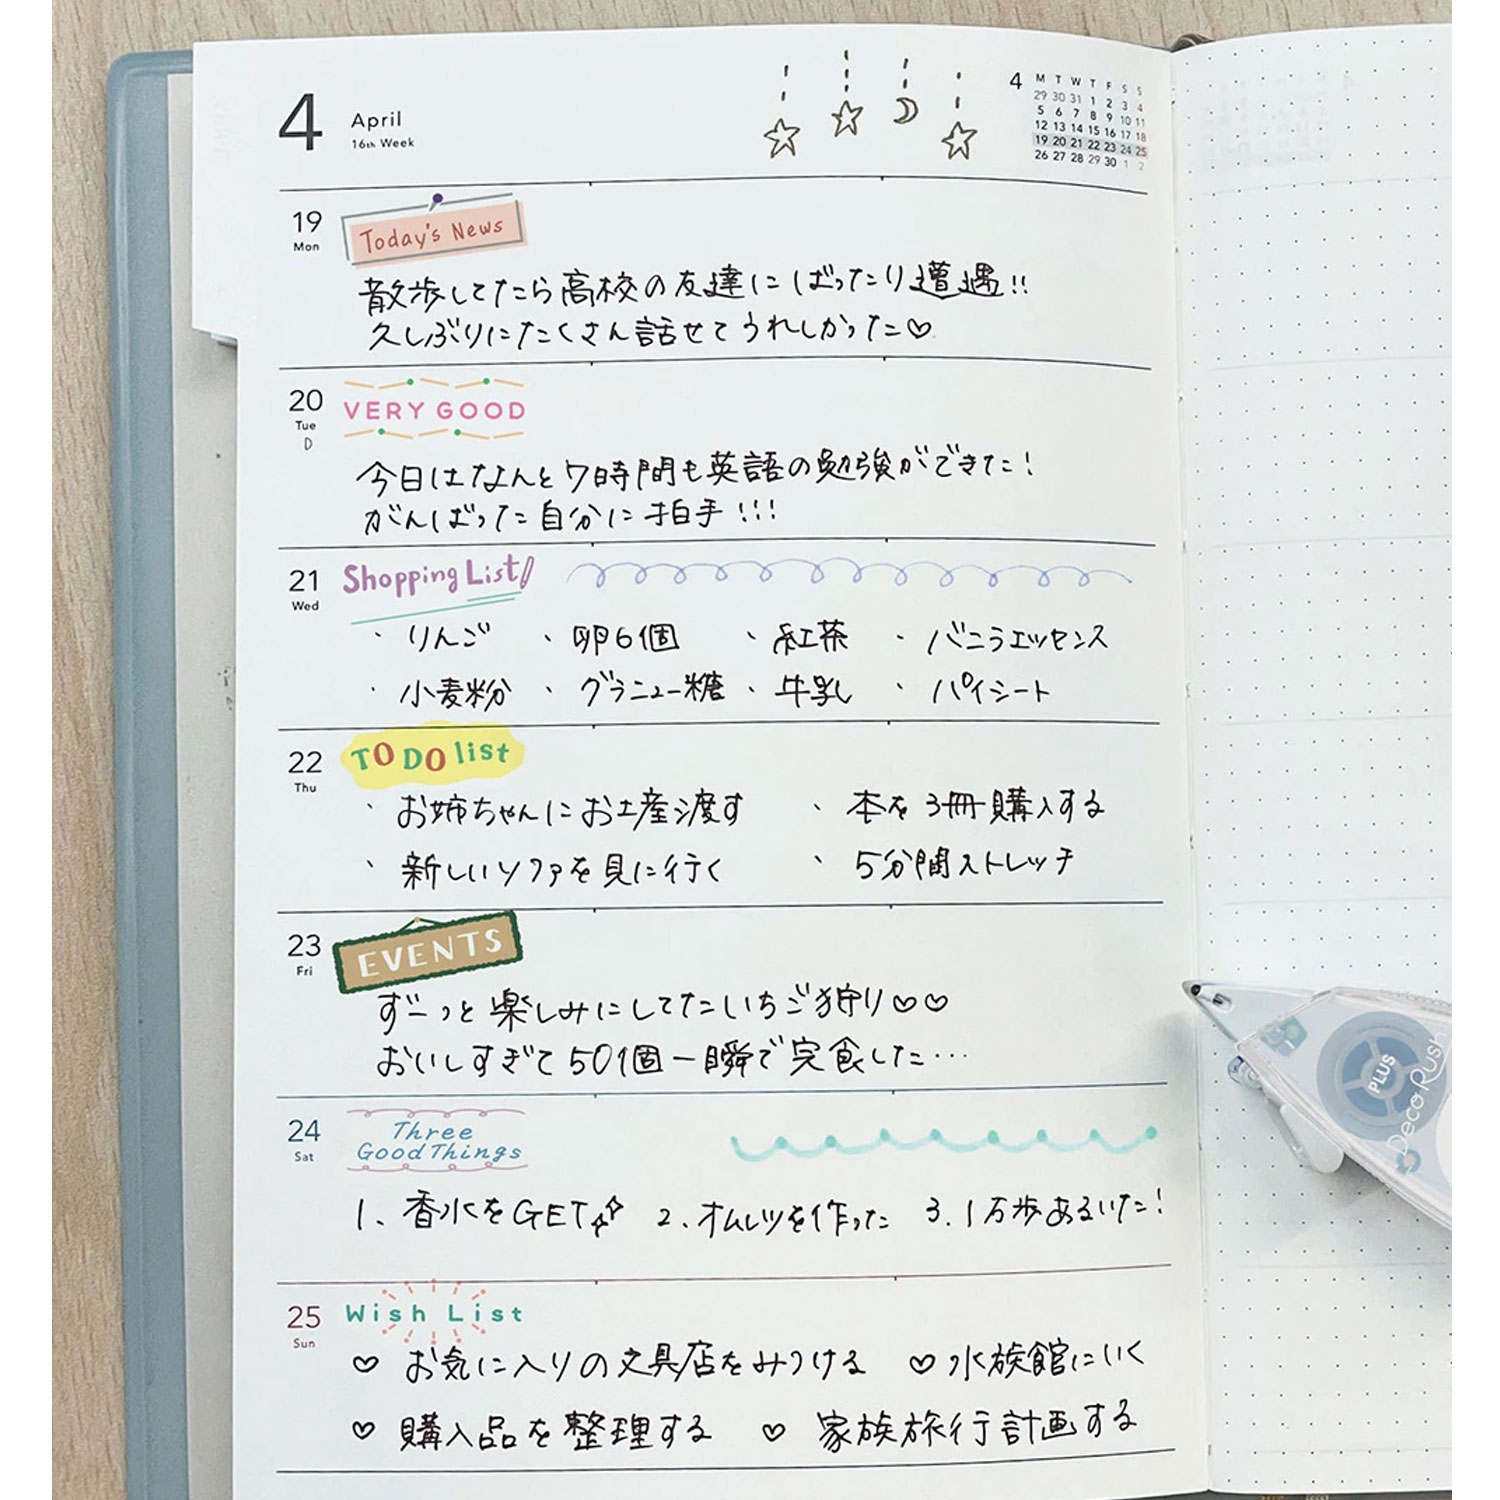 4 April
16th Week
4 M T W T F S S
29 30 31 1 2 3 4
5 6 7 8 9 10 11
12 13 14 15 16 17 18
19 20 21 22 23 24 25
26 27 28 29 30 1 2
19 Mon
Today's News
散歩してたら高校の友達にばったり遭遇!!
久しぶりにたくさん話せてうれしかった♡
20 Tue
VERY GOOD
今日はなんと7時間も英語の勉強ができた!
がんばった自分に拍手!!!
21 Wed
Shopping List
・りんご ・卵6個 ・紅茶 ・バニラエッセンス
・小麦粉 ・グラニュー糖 ・牛乳 ・パイシート
22 Thu
TO DO list
・お姉ちゃんにお土産渡す ・本を3冊購入する
・新しいソファを見に行く ・5分間ストレッチ
23 Fri
EVENTS
ずーっと楽しみにしてたいちご狩り♡♡
おいしすぎて50個一瞬で完食した…
24 Sat
Three
Good Things
1、香水をGET 2、オムレツを作った 3.1万歩あるいた!
25 Sun
Wish List
♡ お気に入りの文具店をみつける ♡ 水族館にいく
♡ 購入品を整理する ♡ 家族旅行計画する
PLUS
Deco Rush